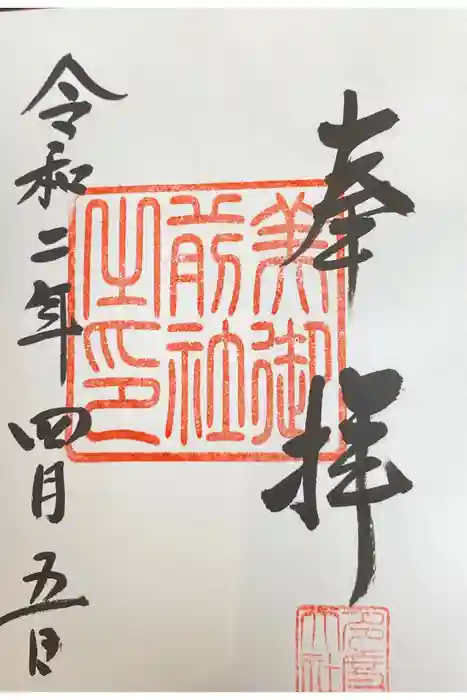 奉拝
美御
前社
之印
令和二年四月五日